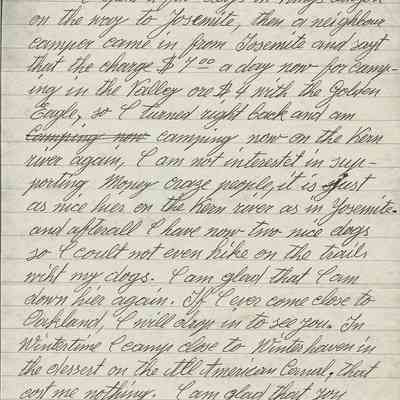 on the way to Josemite, then a neighbour
camper came in from Josemite and sayt
that the charge $ 7 00 a day now for camp-
ing in the Valley ore $ 4 with the Golden
Eagle, so I turned right back and am
camping now camping now on the Kern
river again, I am not interestet in sup-
porting Money craze people, it is just
as nice hier on the Kern river as in Josemite.
and afterall I have now two nice dogs
so I coult not even hike on the trails
wiht my dogs. I am glad that I am
down hier again. If I ever come close to
Oakland, I will drop in to see you. In
Wintertime I camp close to Winterhaven in
the dessert on the All American Canal, that
cost me nothing. I am glad that you